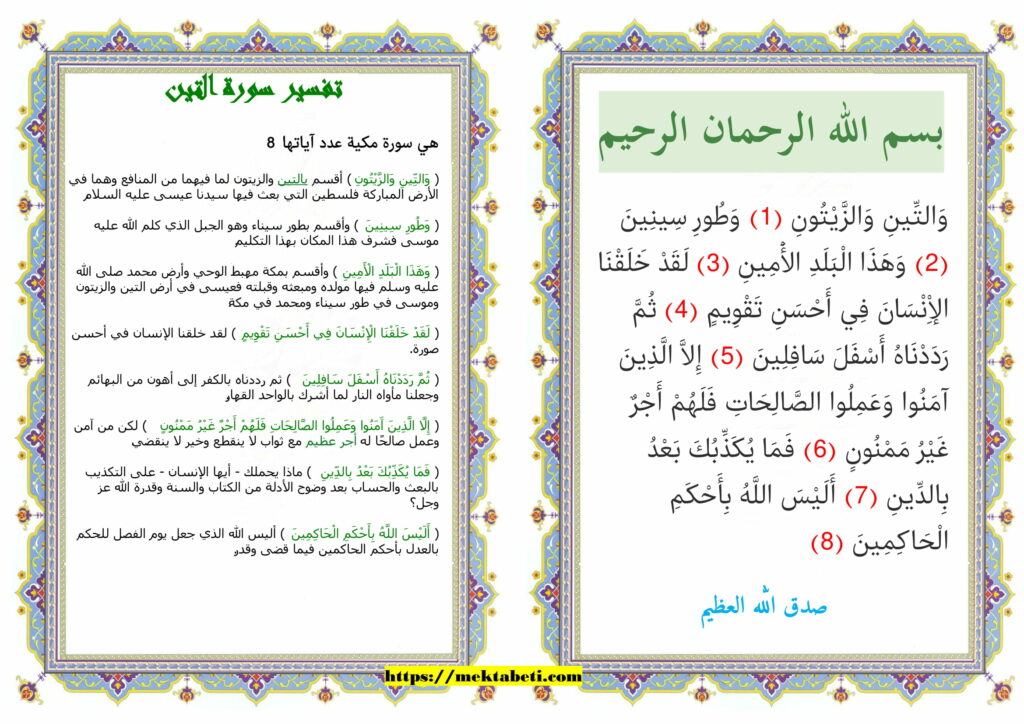 بسم الله الرحمان الرحيم
وَالتِّينِ وَالزَّيْتُونِ (1) وَطُورِ سِينِينَ
(2) وَهَذَا الْبَلَدِ الأَمِينِ (3) لَقَدْ خَلَقْنَا
الإِنْسَانَ فِي أَحْسَنِ تَقْوِيمٍ (4) ثُمَّ
رَدَدْنَاهُ أَسْفَلَ سَافِلِينَ (5) إِلاَّ الَّذِينَ
آمَنُوا وَعَمِلُوا الصَّالِحَاتِ فَلَهُمْ أَجْرٌ
غَيْرُ مَمْنُونٍ (6) فَمَا يُكَذِّبُكَ بَعْدُ
بِالدِّينِ (7) أَلَيْسَ اللَّهُ بِأَحْكَمِ
الْحَاكِمِينَ (8)
صدق الله العظيم
تفسير سورة التين
هي سورة مكية عدد آياتها 8
( وَالتِّينِ وَالزَّيْتُونِ ) أقسم بالتين والزيتون لما فيهما من المنافع وهما في
الأرض المباركة فلسطين التي بعث فيها سيدنا عيسى عليه السلام
( وَطُورِ سِينِينَ ) وأقسم بطور سيناء وهو الجبل الذي كلم الله عليه
موسى فشرف هذا المكان بهذا التكليم
( وَهَذَا الْبَلَدِ الْأَمِينِ ) وأقسم بمكة مهبط الوحي وأرض محمد صلى الله
عليه وسلم فيها مولده ومبعثه وقبلته فعيسى في أرض التين والزيتون
وموسى في طور سيناء ومحمد في مكة
( لَقَدْ خَلَقْنَا الْإِنْسَانَ فِي أَحْسَنِ تَقْوِيمٍ ) لقد خلقنا الإنسان في أحسن
صورة.
( ثُمَّ رَدَدْنَاهُ أَسْفَلَ سَافِلِينَ ) ثم رددناه بالكفر إلى أهون من البهائم
وجعلنا مأواه النار لما أشرك بالواحد القهار
( إِلَّا الَّذِينَ آمَنُوا وَعَمِلُوا الصَّالِحَاتِ فَلَهُمْ أَجْرٌ غَيْرُ مَمْنُونٍ ) لكن من آمن
وعمل صالحًا له أجر عظيم مع ثواب لا ينقطع وخير لا ينقضي
( فَمَا يُكَذِّبُكَ بَعْدُ بِالدِّينِ ) ماذا يحملك - أيها الإنسان - على التكذيب
بالبعث والحساب بعد وضوح الأدلة من الكتاب والسنة وقدرة الله عز
وجل؟
( أَلَيْسَ اللَّهُ بِأَحْكَمِ الْحَاكِمِينَ ) أليس الله الذي جعل يوم الفصل للحكم
بالعدل بأحكم الحاكمين فيما قضى وقدر
https://mektabeti.com